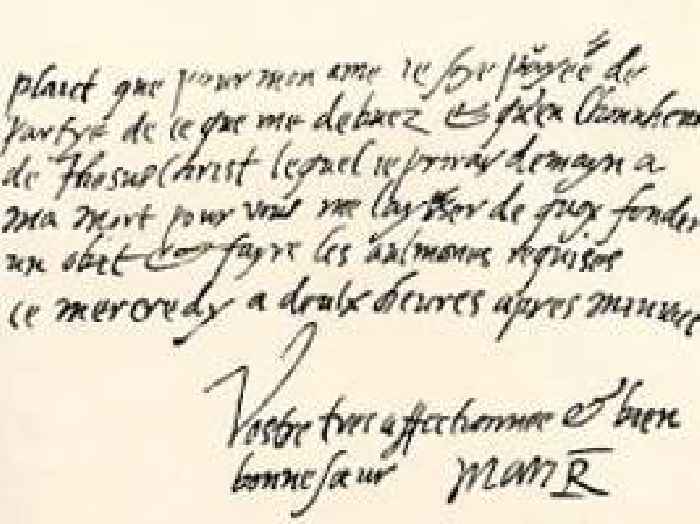 plaict que pour mon ame ie soye payée de
partye de ce que me debuez & qu'en l'honnheur
de Jhesus Christ lequel ie priray demayn a
ma mort pour vous me laysser de quoy fonder
un obit & fayre les aulmones requises
ce mercredy a deulx heures apres minuict
Vostre tres affectionnee & bien
bonne sœur Mari R